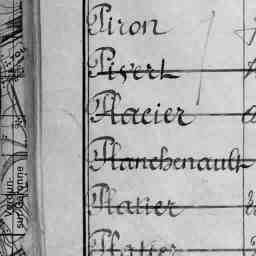 Piron
Pivert
Placier
Planchenault
Platier
Verdun
sur Garonne